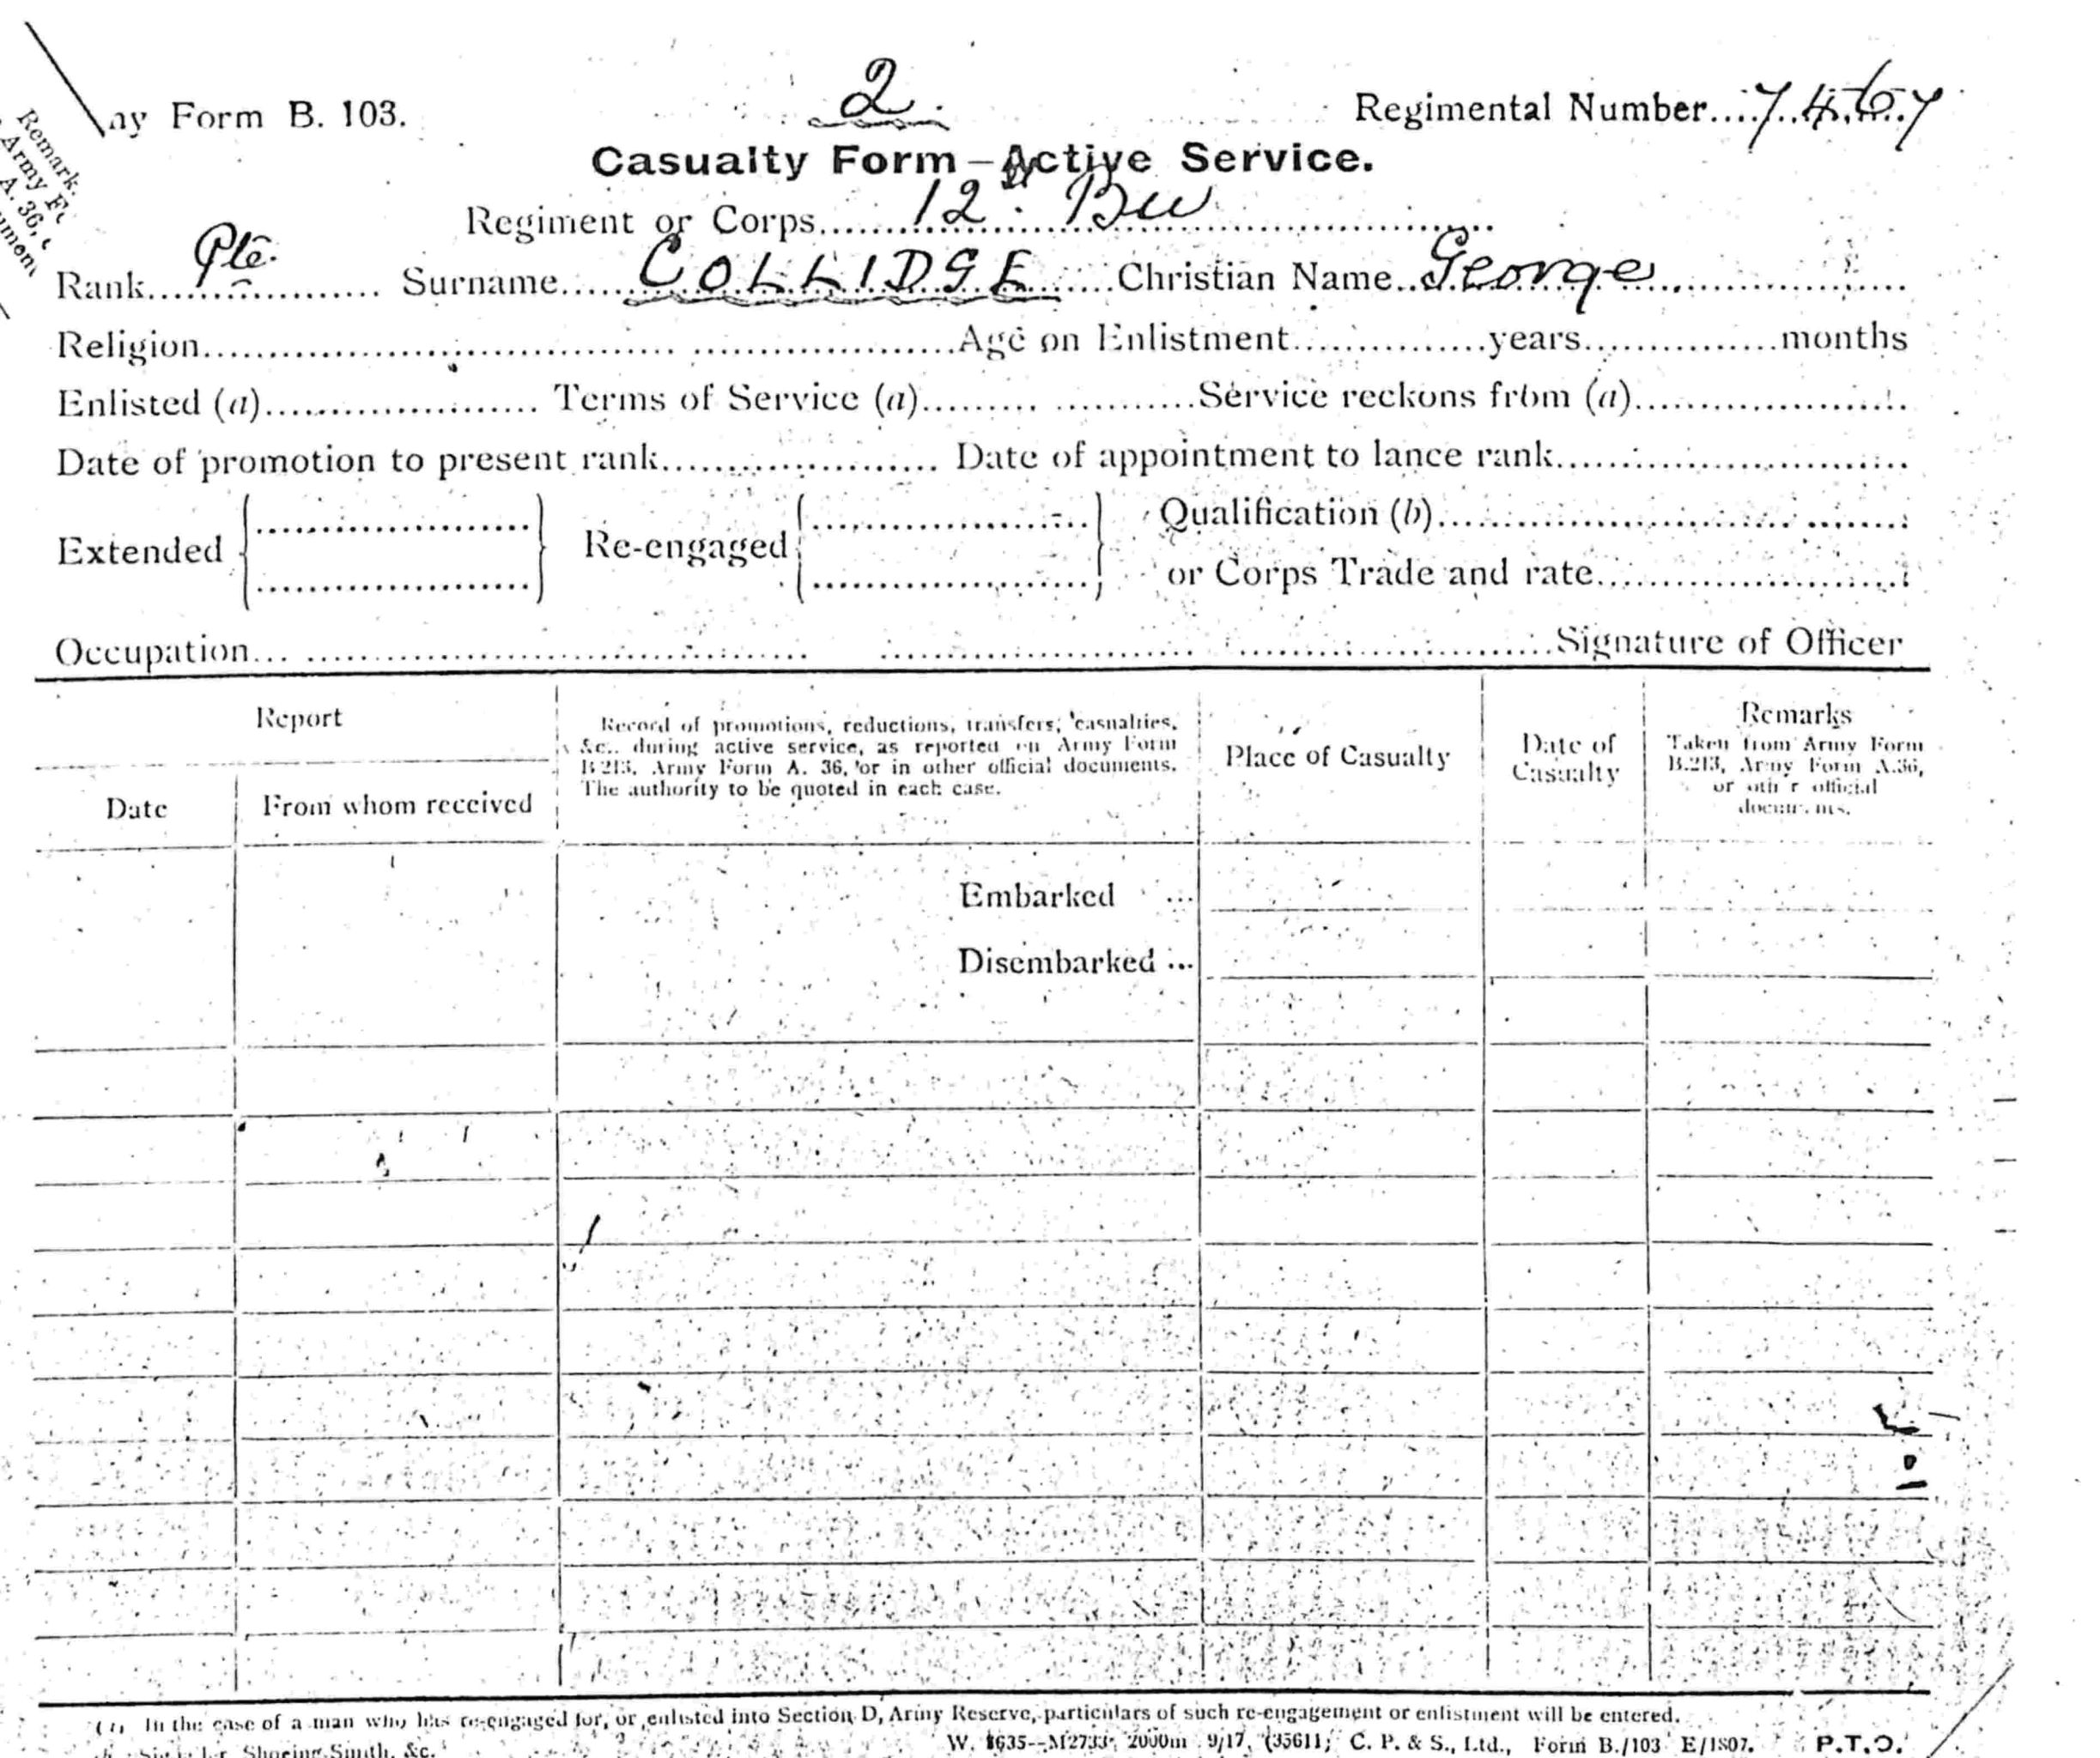 ny Form B. 103.
2.
Regimental Number....7467
Remark.
Army F
A. 36,
Casualty Form—Active Service.
Regiment or Corps......12th Bn
Rank....Pte. Surname....COLLIDGE....Christian Name..George
Religion............Age on Enlistment............years............months
Enlisted (a)............ Terms of Service (a)............Service reckons from (a)............
Date of promotion to present rank............ Date of appointment to lance rank............
Extended Re-engaged Qualification (b)............
or Corps Trade and rate............
Occupation............Signature of Officer
Report
Date
From whom received
Record of promotions, reductions, transfers, casualties,
&c., during active service, as reported on Army Form
B.213, Army Form A. 36, or in other official documents.
The authority to be quoted in each case.
Place of Casualty
Date of
Casualty
Remarks
Taken from Army Form
B.213, Army Form A.36,
or other official
documents.
Embarked ...
Disembarked ...
In the case of a man who has re-engaged for, or enlisted into Section D, Army Reserve, particulars of such re-engagement or enlistment will be entered.
Shoeing Smith, &c.
W. 8635—M2733 2000m 9/17 (35611) C. P. & S., Ltd., Form B./103 E/1807. P.T.O.